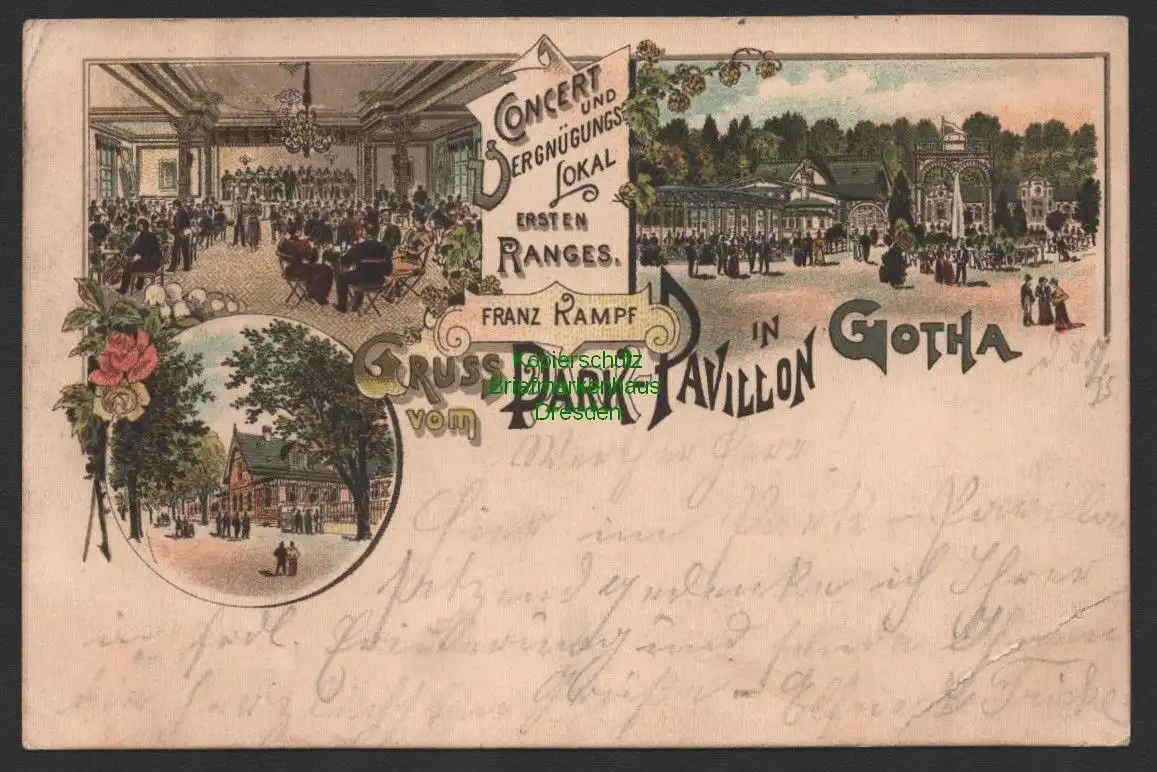 CONCERT
UND
VERGNÜGUNGS
LOKAL
ERSTEN
RANGES.
FRANZ KAMPF
GRUSS
VOM
PARK-PAVILLON
IN
GOTHA
Kopierschutz
Briefmarkenhaus
Dresden
Werther Herr!
Hier im Park-Pavillon
sitzend gedenke ich Ihrer
in frdl. Erinnerung und sende Ihnen
die herzlichsten Grüße